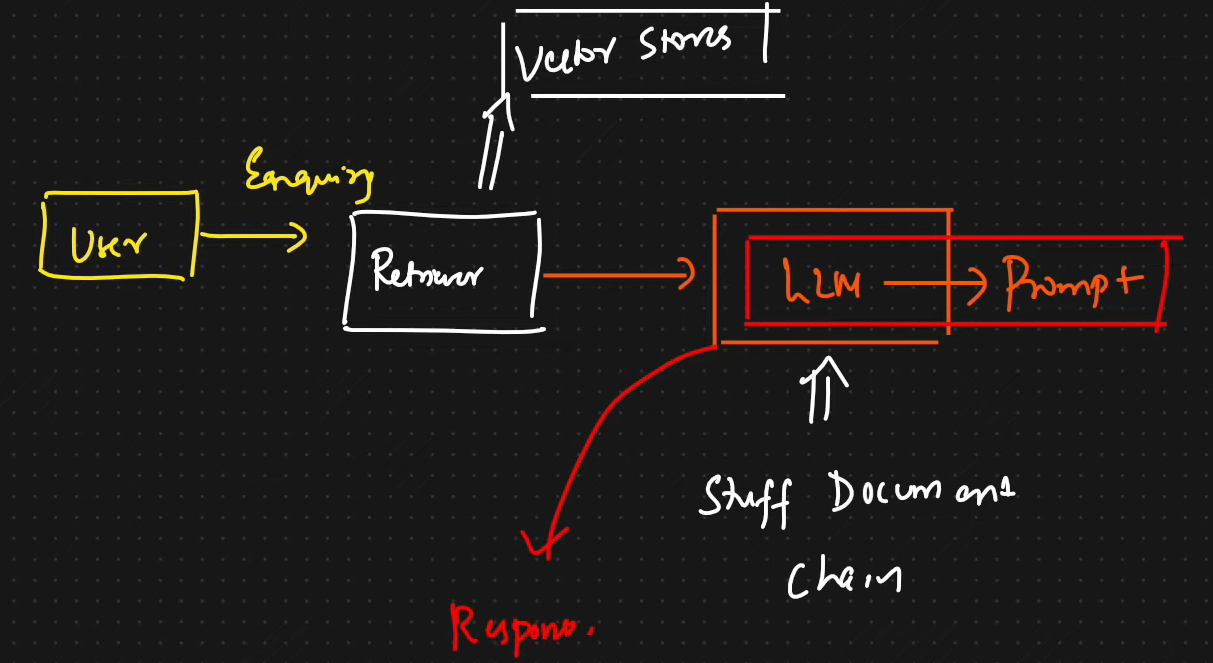 Vector Stores
Enquiry
User
Retriever
LLM → Prompt
Stuff Document
Chain
Respons.